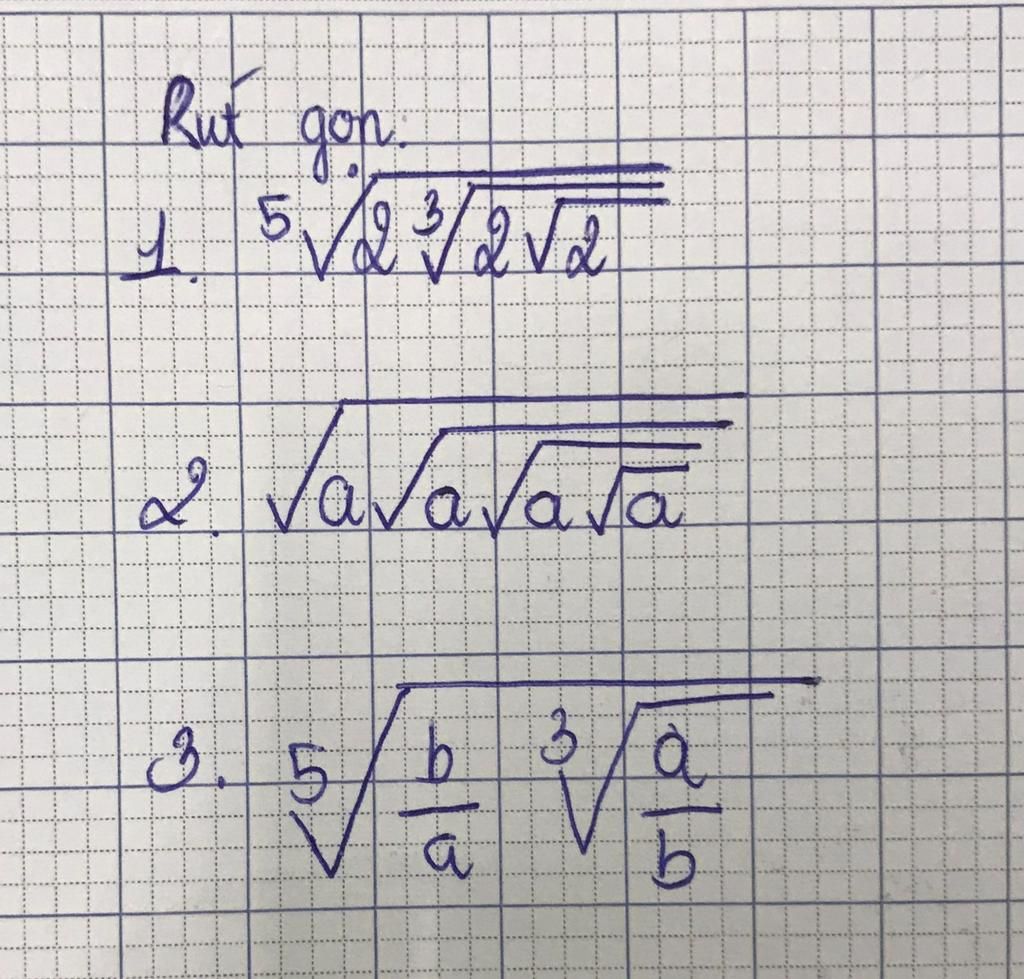 Rút gọn:
1. ⁵√(2 ³√(2 √2))
2. √(a √(a √(a √a)))
3. ⁵√(b/a ³√(a/b))